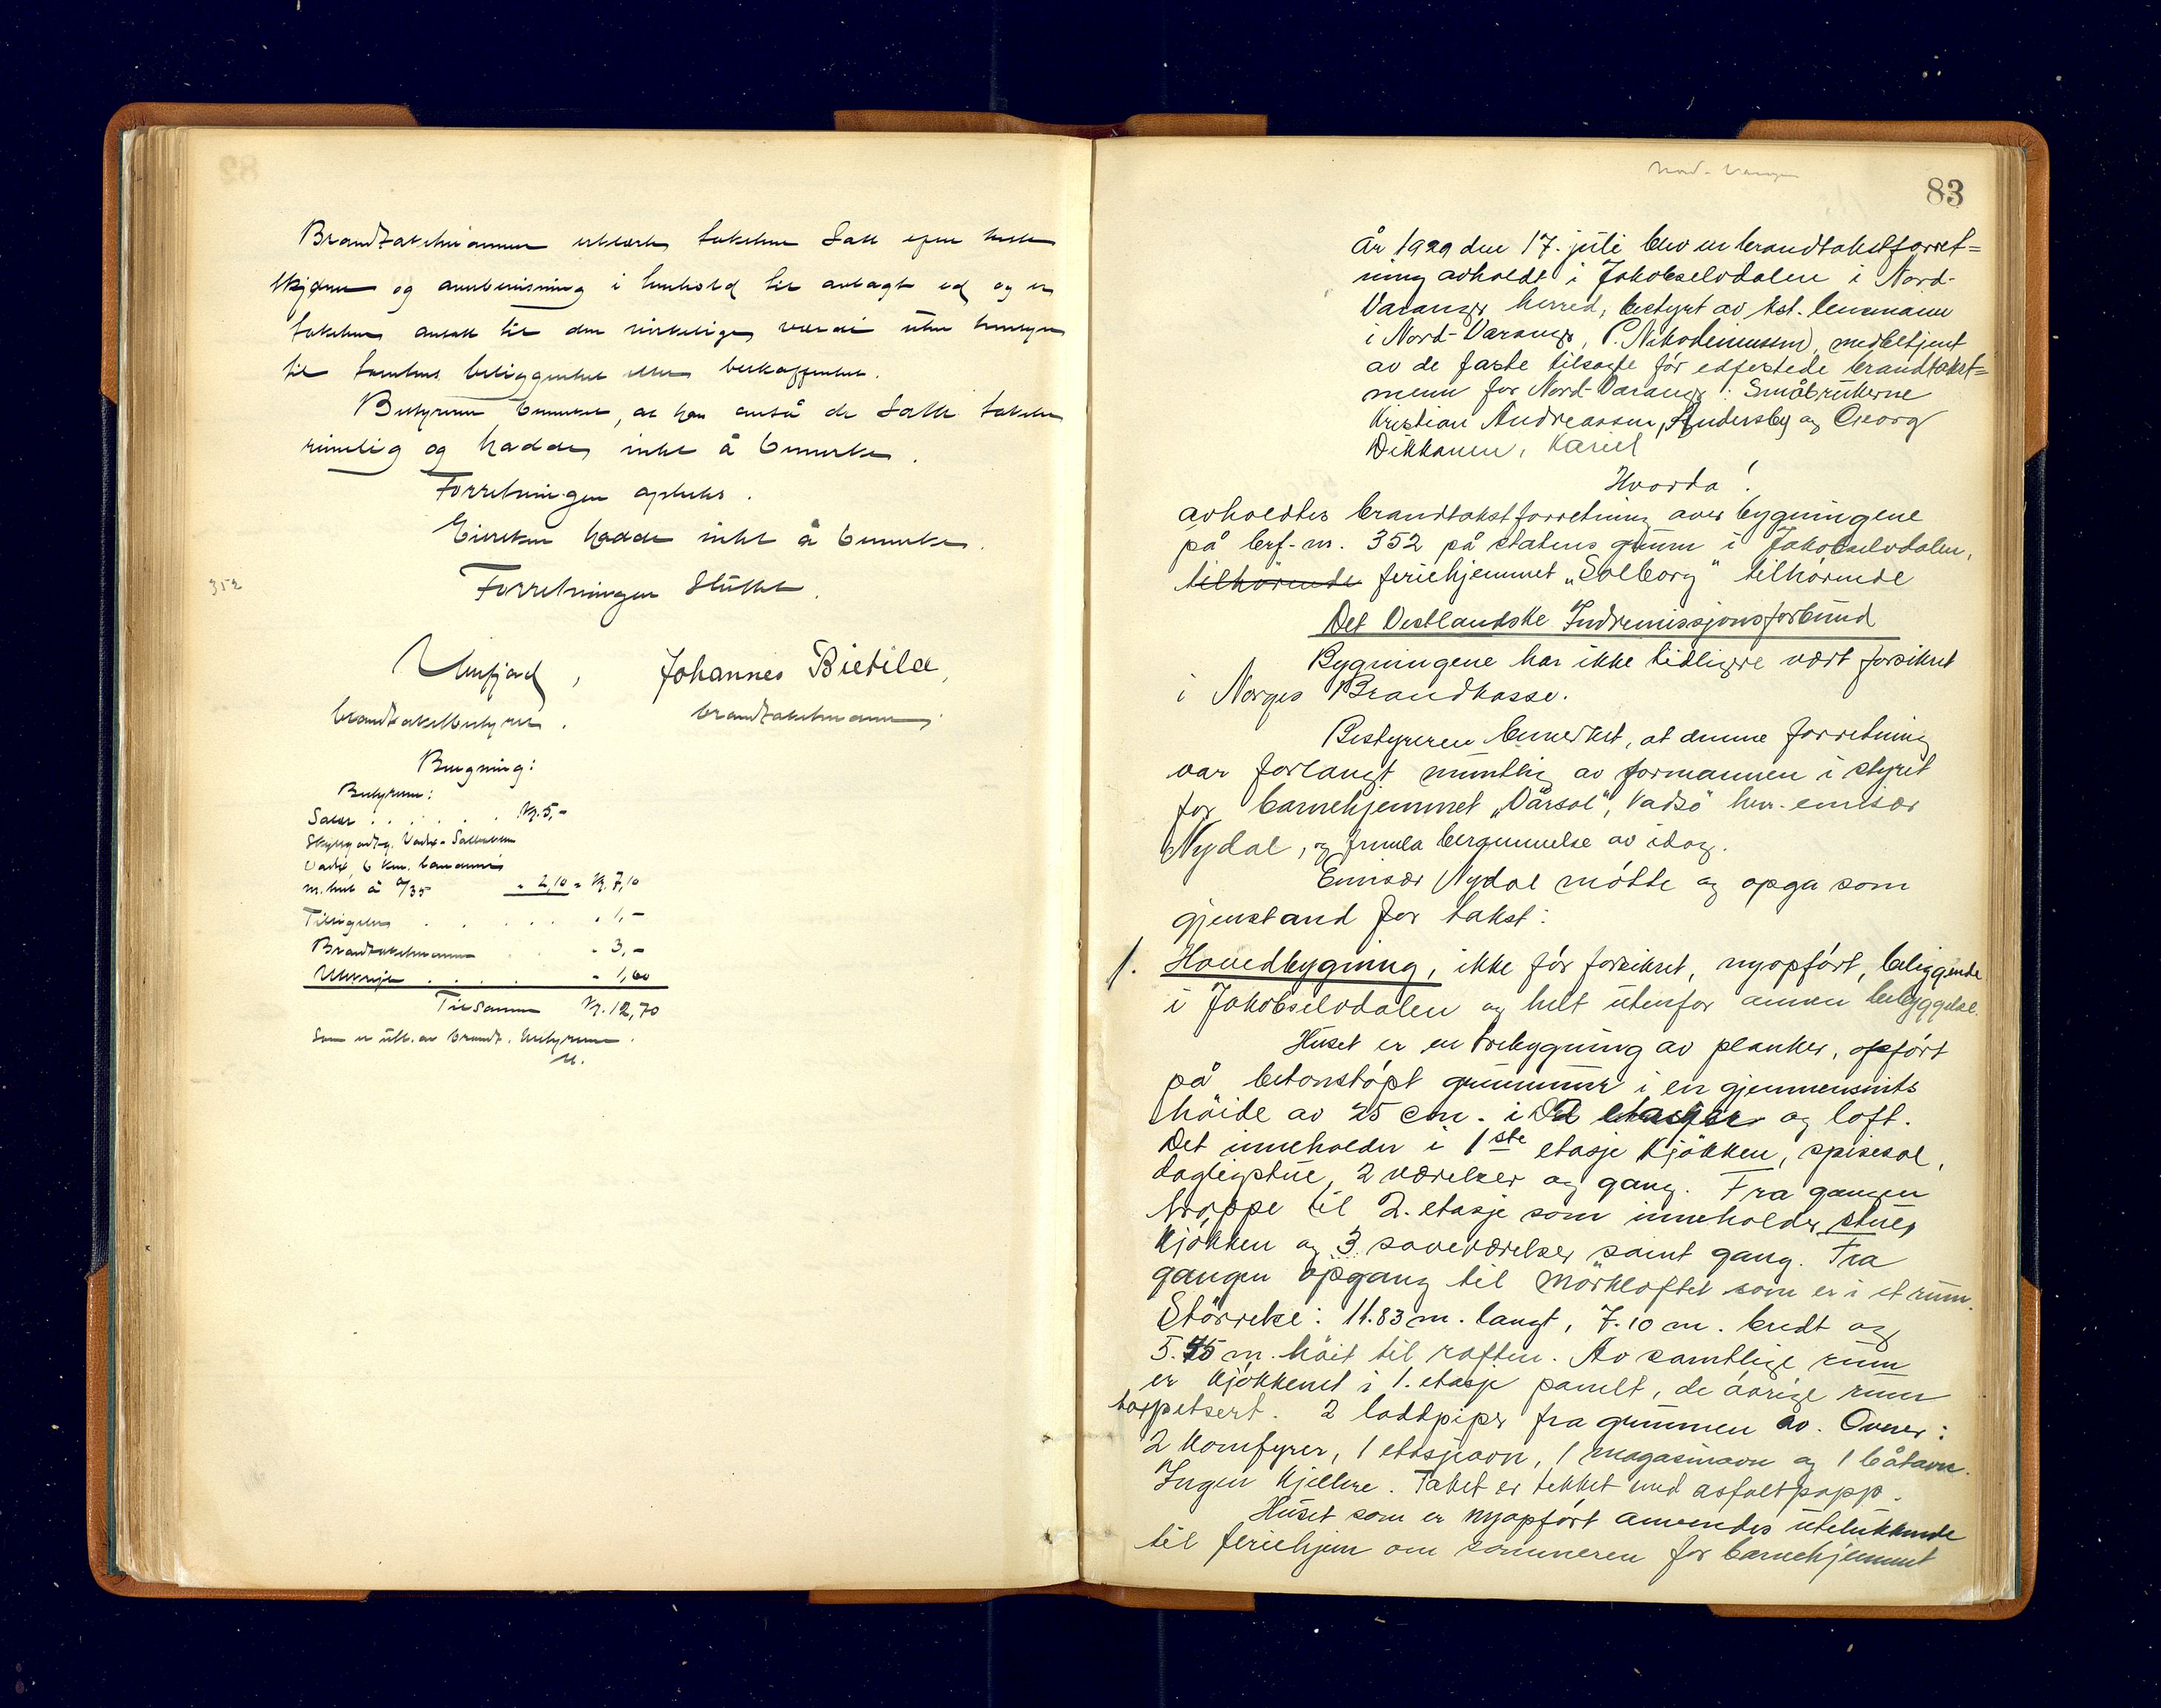 Brandtakstmannen erklærte taksten satt efter beste
skjønn og overbevisning i henhold til avlagt ed og er
taksten ansatt til den virkelige værdi uten hensyn
til tomtens beliggenhet eller beskaffenhet.
Bestyreren bemerket, at han anså de satte takster
rimelig og hadde intet å bemerke.
Forretningen oplestes.
Eieren hadde intet å bemerke.
352
Forretningen sluttet.
Johannes Bietilæ,
brandtakstbestyrer. brandtakstmann.
Beregning:
Bestyreren:
Salær . . . . . . Kr. 5,-
Vadsø, 6 km. landevei
m. hest à 0/35 " 2,10 = Kr. 7,10
Tilsigelse . . . . . " 1,-
Brandtakstmannen . . " 3,-
Utskrift . . . . . " 1,60
Tilsammen Kr. 12,70
Som er utb. av brandt. bestyreren.
U.
Nord-Varanger
83
År 1929 den 17. juli blev en brandtakstforret=
ning avholdt i Jakobselvdalen i Nord-
Varanger herred, bestyrt av kst. lensmann
i Nord-Varanger, P. Nikodemussen, medbetjent
av de faste tilsagte før edfestede brandtakst=
menn for Nord-Varanger: Småbrukerne
Kristian Andreassen, Andersby og Georg
Dikkanen, Kariel
Hvorda!
avholdtes brandtakstforretning over bygningene
på brf-nr. 352 på statens grunn i Jakobselvdalen,
tilhørende feriehjemmet "Solborg" tilhørende
Det Vestlandske Indremissjonsforbund
Bygningene har ikke tidligere vært forsikret
i Norges Brandkasse.
Bestyreren bemerket, at denne forretning
var forlangt muntlig av formannen i styret
for barnehjemmet "Vårsol", Vadsø herr emisær
Nydal, og formela bergunnelse av idag.
Emisær Nydal møtte og opga som
gjenstand for takst:
1. Hovedbygning, ikke før forsikret, nyopført, beliggende
i Jakobselvdalen og helt utenfor annen bebyggelse.
Huset er en trebygning av planker, opført
på betonstøpt grunnmur i en gjennemsnits
høide av 25 cm. i 2 etasjer og loft.
Det inneholder i 1ste etasje kjøkken, spisesal,
dagligstue, 2 værelser og gang. Fra gangen
trappe til 2. etasje som inneholder stue,
kjøkken og 3 soveværelser samt gang. Fra
gangen opgang til mørkloftet som er i et rum.
Størrelse: 11.83 m. langt, 7.10 m. bredt og
5.75 m. høit til raften. Av samtlige rum
er kjøkkenet i 1. etasje panelt, de øvrige rum
tappetsert. 2 loddpiper fra grunnen av. Ovner:
2 komfyrer, 1 etasjeovn, 1 magasinovn og 1 båtovn.
Ingen kjellere. Taket er tekket med asfaltpapp.
Huset som er nyopført anvendes utelukkende
til feriehjem om sommeren for barnehjemmet